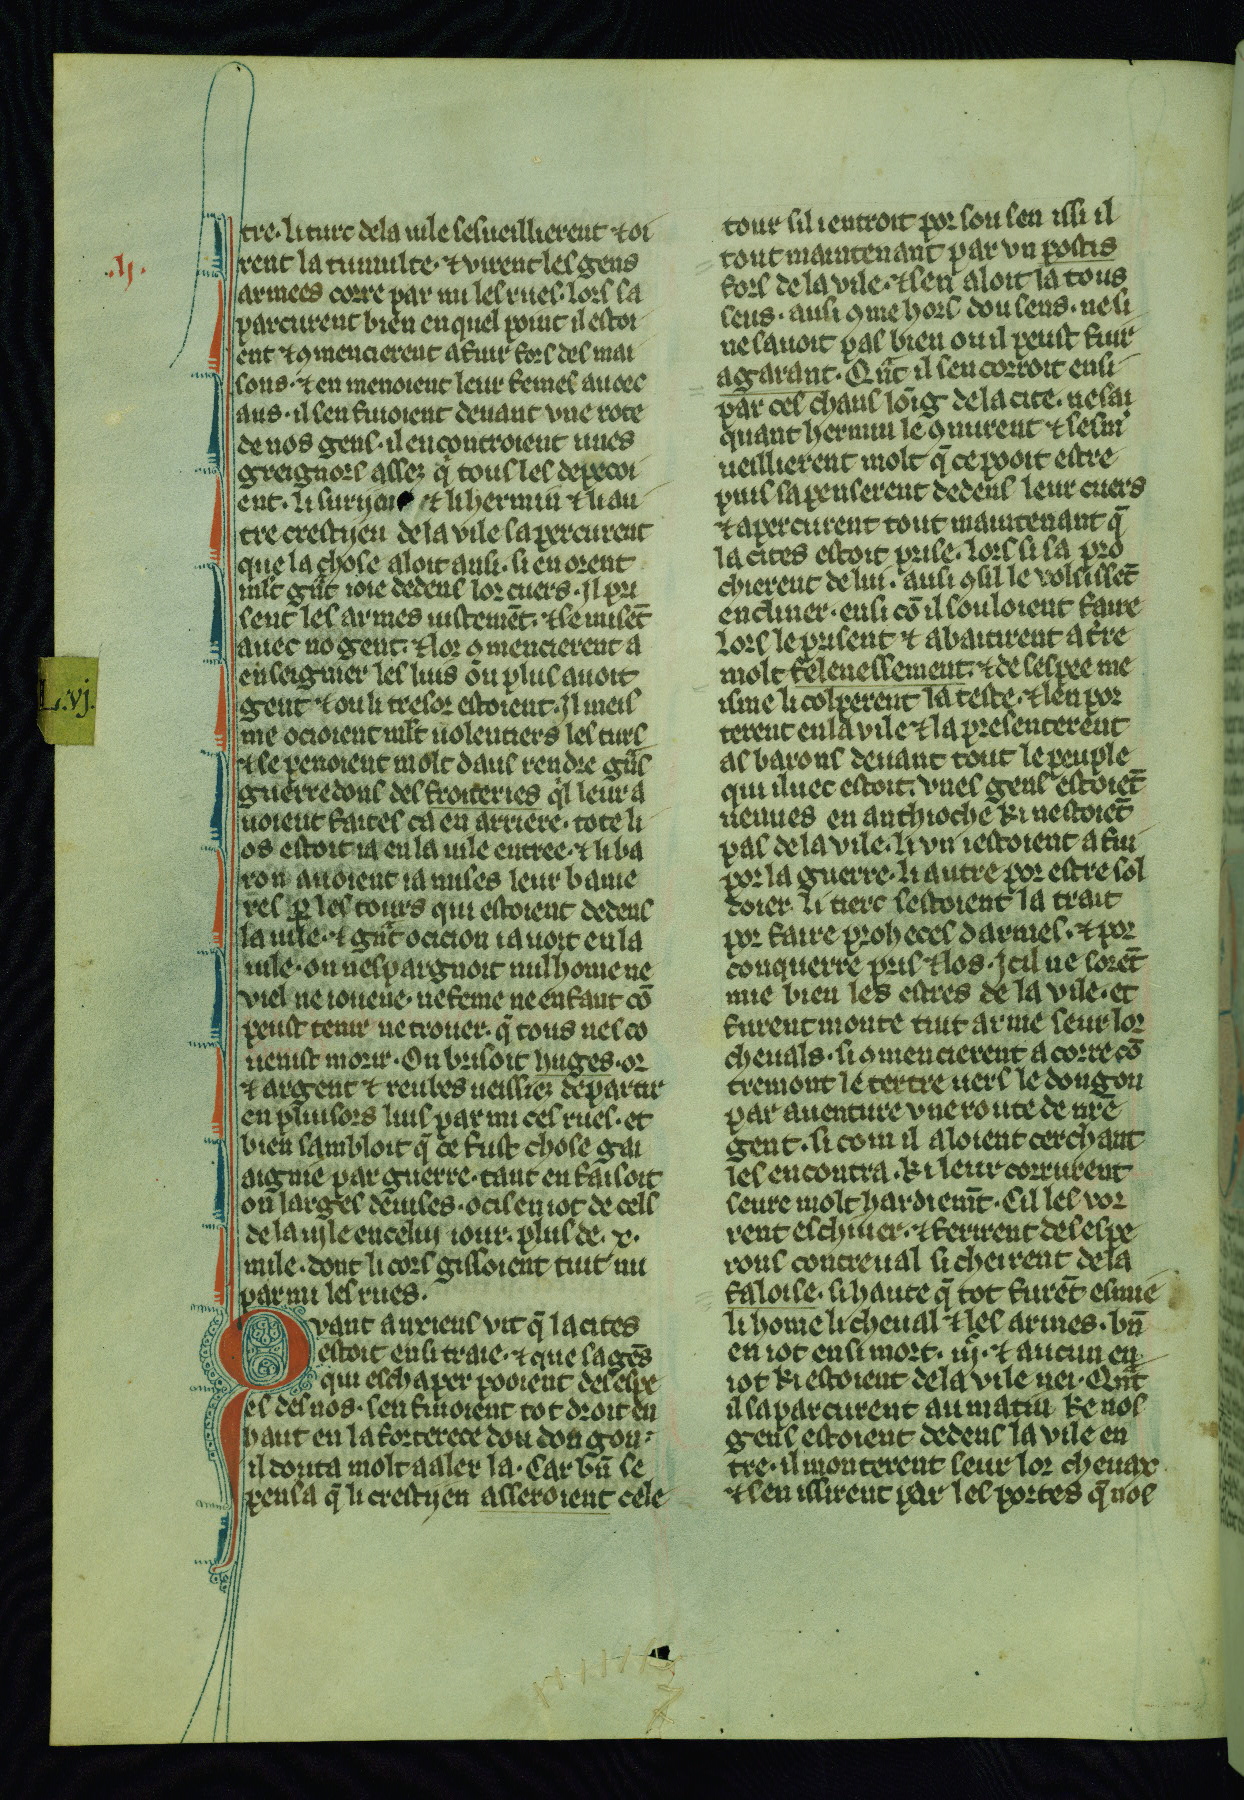 .ij.
L.vj.
tre. li turc de la uile sesueillierent ⁊ oi
rent la tumulte. ⁊ virent les gens
armees corre par mi les rues. lors sa
parcurent bien en quel point il estoi
ent ⁊ ꝯmencierent a fuir fors des mai
sons. ⁊ en menoient leur femes auoec
aus. il sen fuioient deuant vne rote
de nos gens. il encontroient unes
greignors assez q̄ tous les depecoi
ent. li suryen ⁊ li hermin ⁊ li au
tre crestyen de la vile sapercurent
que la chose aloit ausi. si en orent
ml't gnt̄ ioie dedens lor cuers. Il pri
sent les armes uistemēt. ⁊ se misēt
auec no gent. ⁊ lor ꝯmencierent a
enseignier les lius ou plus auoit
gent ⁊ ou li tresor estoient. Il meis
me ocioient ml't uolentiers les turs
⁊ se penoient molt daus rendre gn̄s
guerredons des froiteries ql leur a
uoient faites ca en arriere. tote li
os estoit ia en la uile entree. ⁊ li ba
ron auoient ia mises leur banie
res ꝑ les tours qui estoient dedens
la uile. ⁊ gnt̄ ocicion i auoit en la
uile. on nespargnoit nul home ne
viel ne ioueue. ne feme ne enfant cō
peust tenir ne trouer. q̄ tous nesco
uenist morir. On brisoit huges. or
⁊ argent ⁊ reubes ueissiez departir
en pluisors lius par mi ces rues. et
bien sambloit q̄ ce fust chose gai
aignie par guerre. tant en faisoit
on larges deuises. ocis en iot de cels
de la uile en celui iour. plus de .x.
mile. dont li cors gissoient tuit nu
par mi les rues.
Qvant anxiens vit q̄ la cites
estoit ensi traie. ⁊ que sa gēs
qui eschaper pooient des espe
es des nos. sen fuioient tot droit en
haut en la forterece dou dongon
il douta molt a aler la. Car bn̄ se
pensa q̄ li crestyen asseroient cele
tour sil i entroit por sou sen issi il
tout maintenant par vn postis
fors de la vile. ⁊ sen aloit la tous
seus. ausi ꝯme hors dou sens. ne si
ne sauoit pas bien ou il peust fuir
agarant. Qn̄t il sen corroit ensi
par ces chans loig de la cite. ne sai
quant hermin le ꝯnurent ⁊ sesm
ueillierent molt q̄ ce pooit estre
puis sapenserent dedens leur cuers
⁊ apercurent tout maintenant q̄
la cites estoit prise. lors si sa pro
chierent de lui. ausi ꝯ sil le volsissēt
encliner. ensi cō il souloient faire
lors le prisent ⁊ abatirent a t're
molt felenessement. ⁊ de sespee me
isme li colperent la teste. ⁊ len por
terent en la vile ⁊ la presenterent
as barons deuant tout le peuple
qui iluec estoit. vnes gens estoiēt
uenues en anthioche ki nestoiēt
pas de la vile. li vn i estoient a fui
por la guerre. li autre por estre sol
doier. li tierc sestoient la trait
por faire proheces darmes. ⁊ por
conquerre pris ⁊ los. Icil ne sorēt
mie bien les estres de la vile. et
furent monte tuit arme seur lor
cheuals. si ꝯmencierent a corre cō
tremont le tertre uers le dongon
par auenture vne route de nr̄e
gent. si com il aloient cerchant
les encontra. ki leur corrurent
seure molt hardiemn̄t. Cil les vor
rent eschiuer. ⁊ ferirent des espe
rons contreual si cheirent de la
faloise. si haute q̄ tot furēt esmie
li home li cheual ⁊ les armes. bn̄
en iot ensi mort. iij. ⁊ aucun en
iot ki estoient de la vile nei. Qnt̄
il saparcurent au matin ke nos
gens estoient dedens la vile en
tre. il monterent seur lor cheuax
⁊ sen issirent par les portes q̄ nos